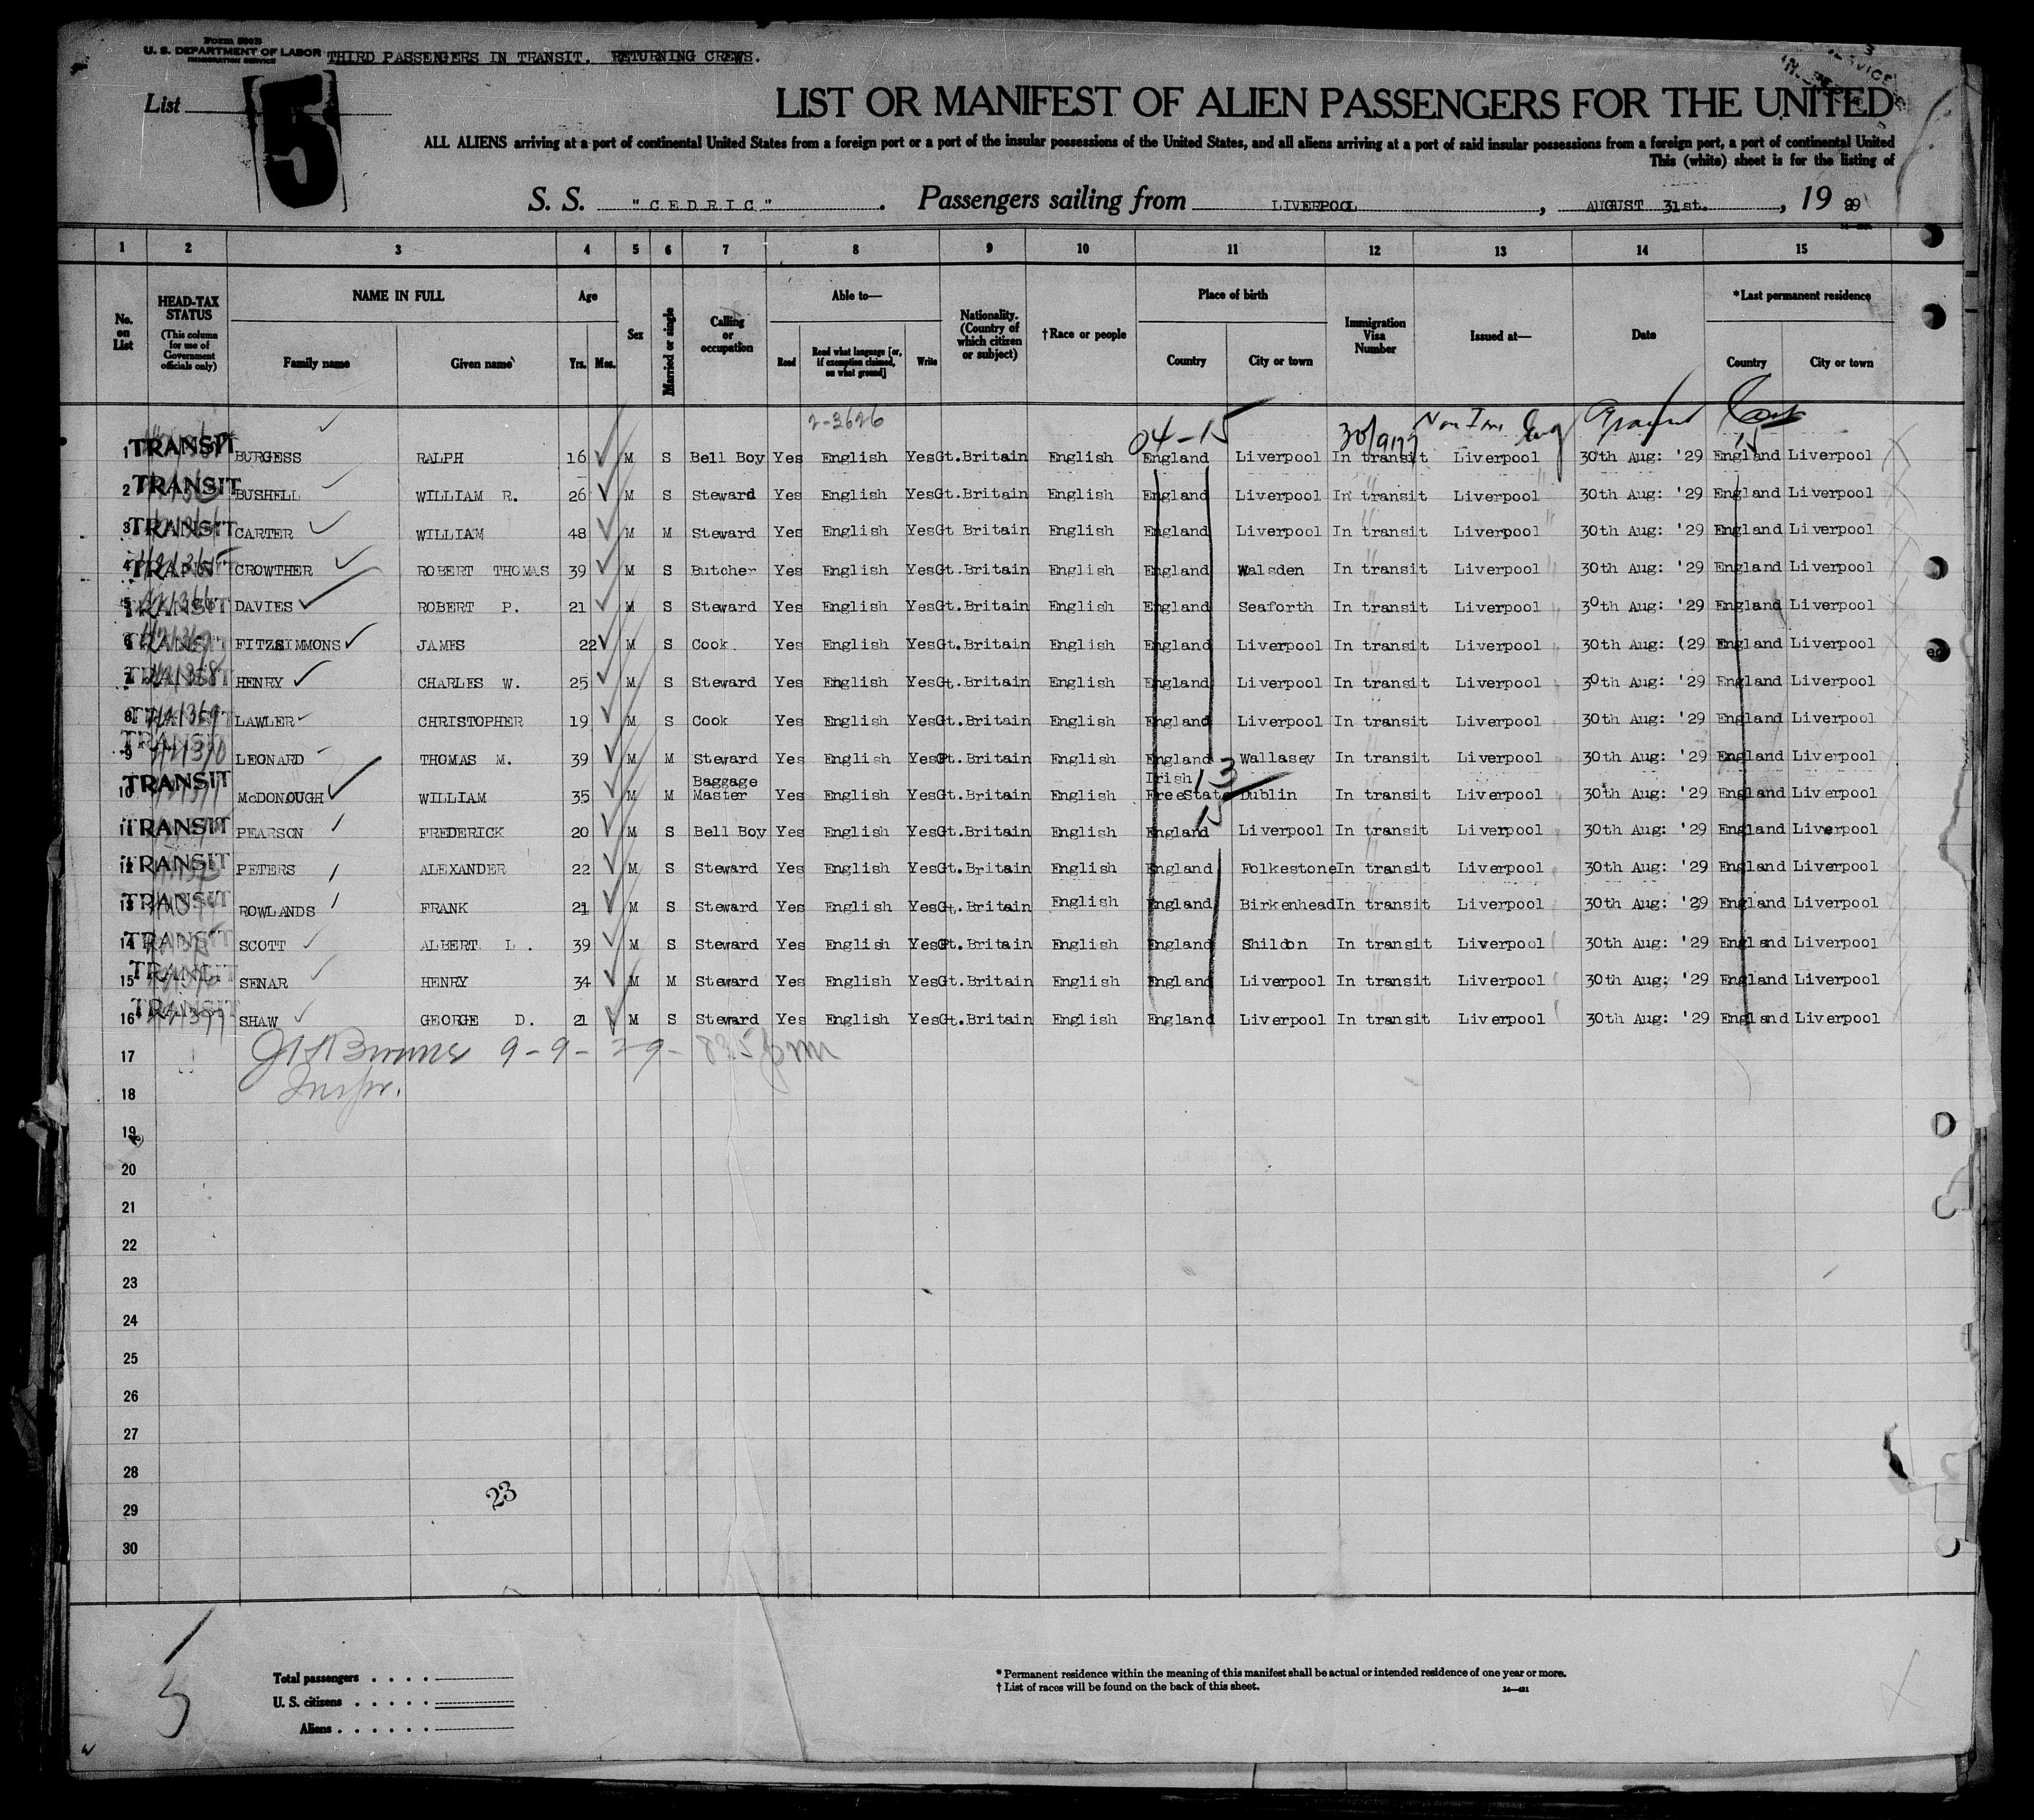 Form 500B
U. S. DEPARTMENT OF LABOR
IMMIGRATION SERVICE
THIRD PASSENGERS IN TRANSIT. RETURNING CREWS.
List 5
LIST OR MANIFEST OF ALIEN PASSENGERS FOR THE UNITED
ALL ALIENS arriving at a port of continental United States from a foreign port or a port of the insular possessions of the United States, and all aliens arriving at a port of said insular possessions from a foreign port, a port of continental United
This (white) sheet is for the listing of
S. S. "CEDRIC". Passengers sailing from LIVERPOOL, AUGUST 31st., 19 29
1 2 3 4 5 6 7 8 9 10 11 12 13 14 15
No. on List
HEAD-TAX STATUS (This column for use of Government officials only)
NAME IN FULL
Family name Given name
Age Yrs. Mos.
Sex
Married or single
Calling or occupation
Able to— Read Read what language [or, if exemption claimed, on what ground] Write
Nationality. (Country of which citizen or subject)
†Race or people
Place of birth Country City or town
Immigration Visa Number
Issued at—
Date
*Last permanent residence Country City or town
2-3626 04-15
1 TRANSIT BURGESS RALPH 16 M S Bell Boy Yes English Yes Gt.Britain English England Liverpool In transit Liverpool 30th Aug: '29 England Liverpool
2 TRANSIT BUSHELL WILLIAM R. 26 M S Steward Yes English Yes Gt.Britain English England Liverpool In transit Liverpool 30th Aug: '29 England Liverpool
3 TRANSIT CARTER WILLIAM 48 M M Steward Yes English Yes Gt Britain English England Liverpool In transit Liverpool 30th Aug: '29 England Liverpool
4 TRANSIT CROWTHER ROBERT THOMAS 39 M S Butcher Yes English Yes Gt.Britain English England Walsden In transit Liverpool 30th Aug: '29 England Liverpool
5 TRANSIT DAVIES ROBERT P. 21 M S Steward Yes English Yes Gt.Britain English England Seaforth In transit Liverpool 30th Aug: '29 England Liverpool
6 TRANSIT FITZSIMMONS JAMES 22 M S Cook. Yes English Yes Gt.Britain English England Liverpool In transit Liverpool 30th Aug: (29 England Liverpool
7 TRANSIT HENRY CHARLES W. 25 M S Steward Yes English Yes Gt.Britain English England Liverpool In transit Liverpool 30th Aug: '29 England Liverpool
8 TRANSIT LAWLER CHRISTOPHER 19 M S Cook Yes English Yes Gt.Britain English England Liverpool In transit Liverpool 30th Aug: '29 England Liverpool
9 TRANSIT LEONARD THOMAS M. 39 M M Steward Yes English Yes Gt.Britain English England Wallasey In transit Liverpool 30th Aug: '29 England Liverpool
10 TRANSIT McDONOUGH WILLIAM 35 M M Baggage Master Yes English Yes Gt.Britain English Irish FreeState Dublin In transit Liverpool 30th Aug: '29 England Liverpool
11 TRANSIT PEARSON FREDERICK 20 M S Bell Boy Yes English Yes Gt.Britain English England Liverpool In transit Liverpool 30th Aug: '29 England Liverpool
12 TRANSIT PETERS ALEXANDER 22 M S Steward Yes English Yes Gt.Britain English England Folkestone In transit Liverpool 30th Aug: '29 England Liverpool
13 TRANSIT ROWLANDS FRANK 21 M S Steward Yes English Yes Gt.Britain English England Birkenhead In transit Liverpool 30th Aug: '29 England Liverpool
14 TRANSIT SCOTT ALBERT L. 39 M S Steward Yes English Yes Gt.Britain English England Shildon In transit Liverpool 30th Aug: '29 England Liverpool
15 TRANSIT SENAR HENRY 34 M M Steward Yes English Yes Gt.Britain English England Liverpool In transit Liverpool 30th Aug: '29 England Liverpool
16 TRANSIT SHAW GEORGE D. 21 M S Steward Yes English Yes Gt.Britain English England Liverpool In transit Liverpool 30th Aug: '29 England Liverpool
17 9-9-29- 835 pm
18 Inspr.
19
20
21
22
23
24
25
26
27
28
29 23
30
Total passengers
U. S. citizens
Aliens
* Permanent residence within the meaning of this manifest shall be actual or intended residence of one year or more.
† List of races will be found on the back of this sheet.
5